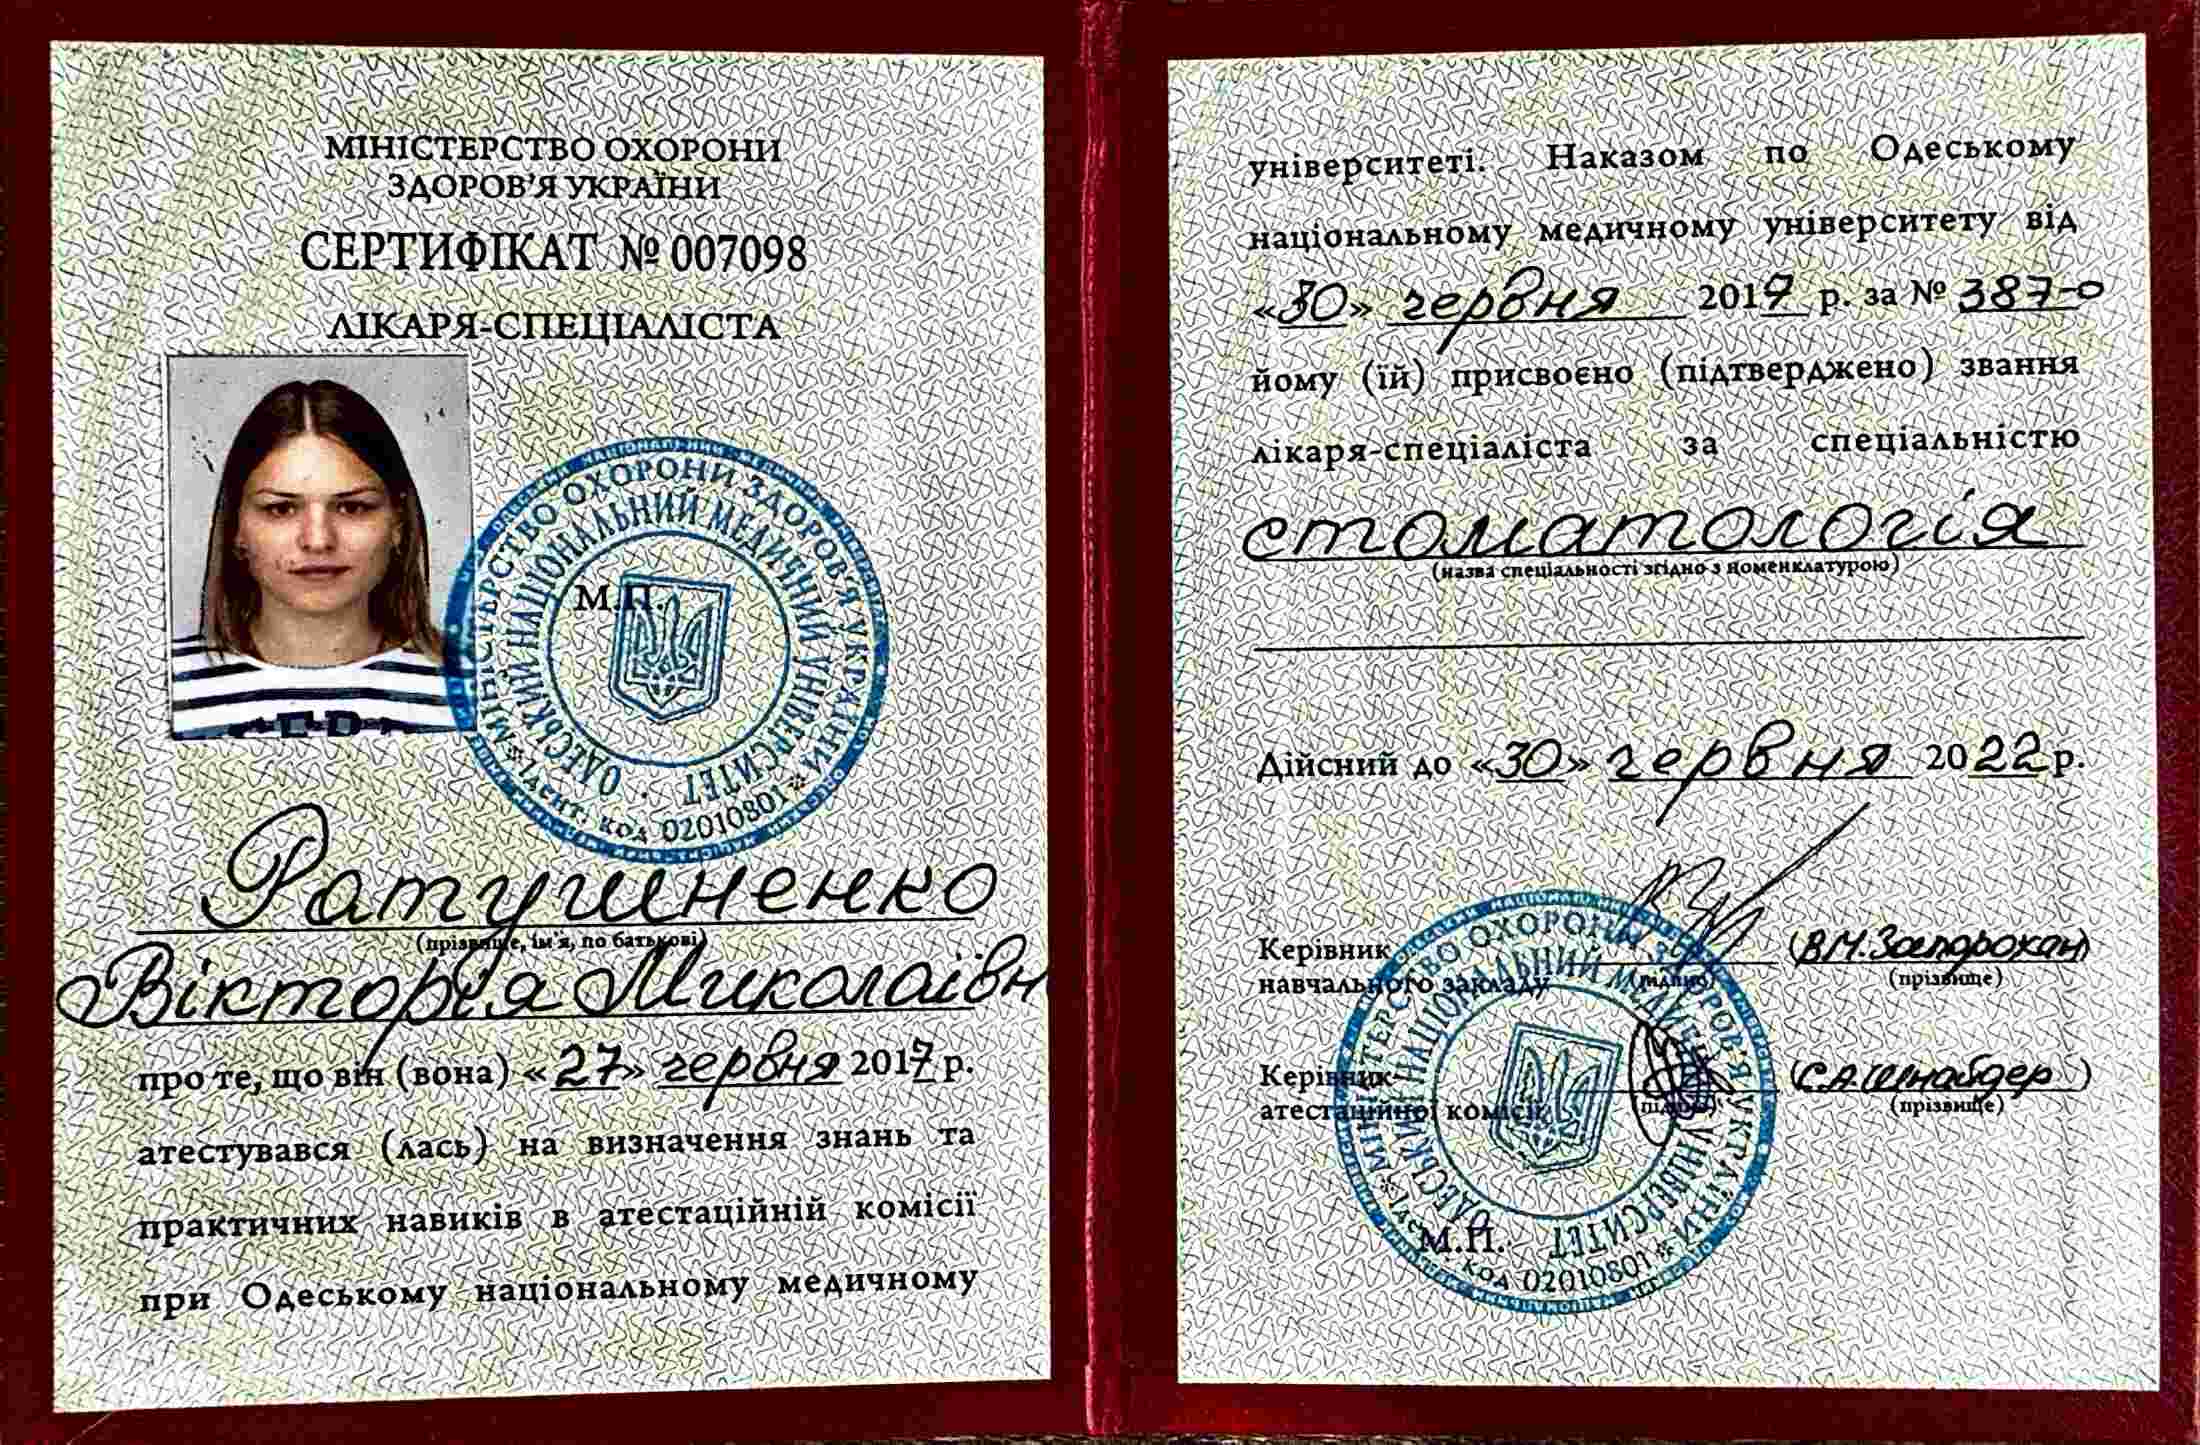 МІНІСТЕРСТВО ОХОРОНИ
ЗДОРОВ'Я УКРАЇНИ
СЕРТИФІКАТ № 007098
ЛІКАРЯ-СПЕЦІАЛІСТА
МІНІСТЕРСТВО ОХОРОНИ ЗДОРОВ'Я УКРАЇНИ
ОДЕСЬКИЙ НАЦІОНАЛЬНИЙ МЕДИЧНИЙ УНІВЕРСИТЕТ
Ідент. код 02010801
М.П.
Ратушненко
(прізвище, ім'я, по батькові)
Вікторія Миколаївн
про те, що він (вона) «27» червня 2017 р.
атестувався (лась) на визначення знань та
практичних навиків в атестаційній комісії
при Одеському національному медичному
університеті. Наказом по Одеському
національному медичному університету від
«30» червня 2017 р. за № 387-о
йому (їй) присвоєно (підтверджено) звання
лікаря-спеціаліста за спеціальністю
стоматологія
(назва спеціальності згідно з номенклатурою)
Дійсний до «30» червня 2022 р.
Керівник (В.М.Запорожан)
навчального закладу (підпис) (прізвище)
Керівник (С.А.Шнайдер)
атестаційної комісії (підпис) (прізвище)
МІНІСТЕРСТВО ОХОРОНИ ЗДОРОВ'Я УКРАЇНИ
ОДЕСЬКИЙ НАЦІОНАЛЬНИЙ МЕДИЧНИЙ УНІВЕРСИТЕТ
Ідент. код 02010801
М.П.